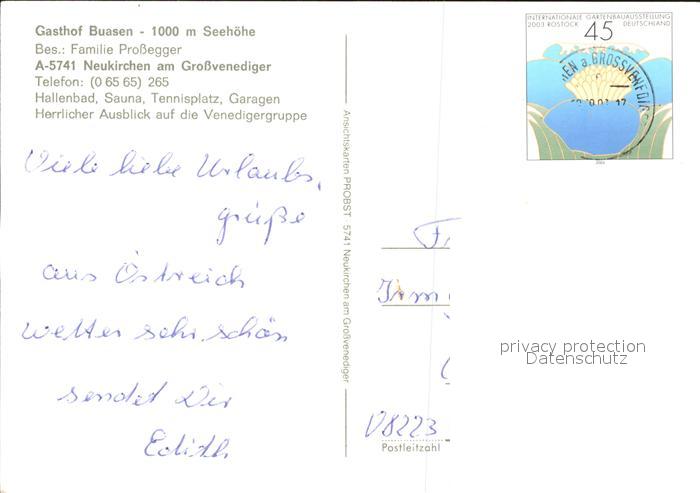 Gasthof Buasen - 1000 m Seehöhe
Bes.: Familie Proßegger
A-5741 Neukirchen am Großvenediger
Telefon: (0 65 65) 265
Hallenbad, Sauna, Tennisplatz, Garagen
Herrlicher Ausblick auf die Venedigergruppe
Viele liebe Urlaubs,
grüße
aus Östreich
wetter sehr schön
sendet Dir
Edith
Ansichtskarten PROBST · 5741 Neukirchen am Großvenediger
INTERNATIONALE GARTENBAUAUSSTELLUNG
2003 ROSTOCK DEUTSCHLAND
45
EN a. GROSSVENEDIG
Irm
D8223
Postleitzahl
privacy protection
Datenschutz